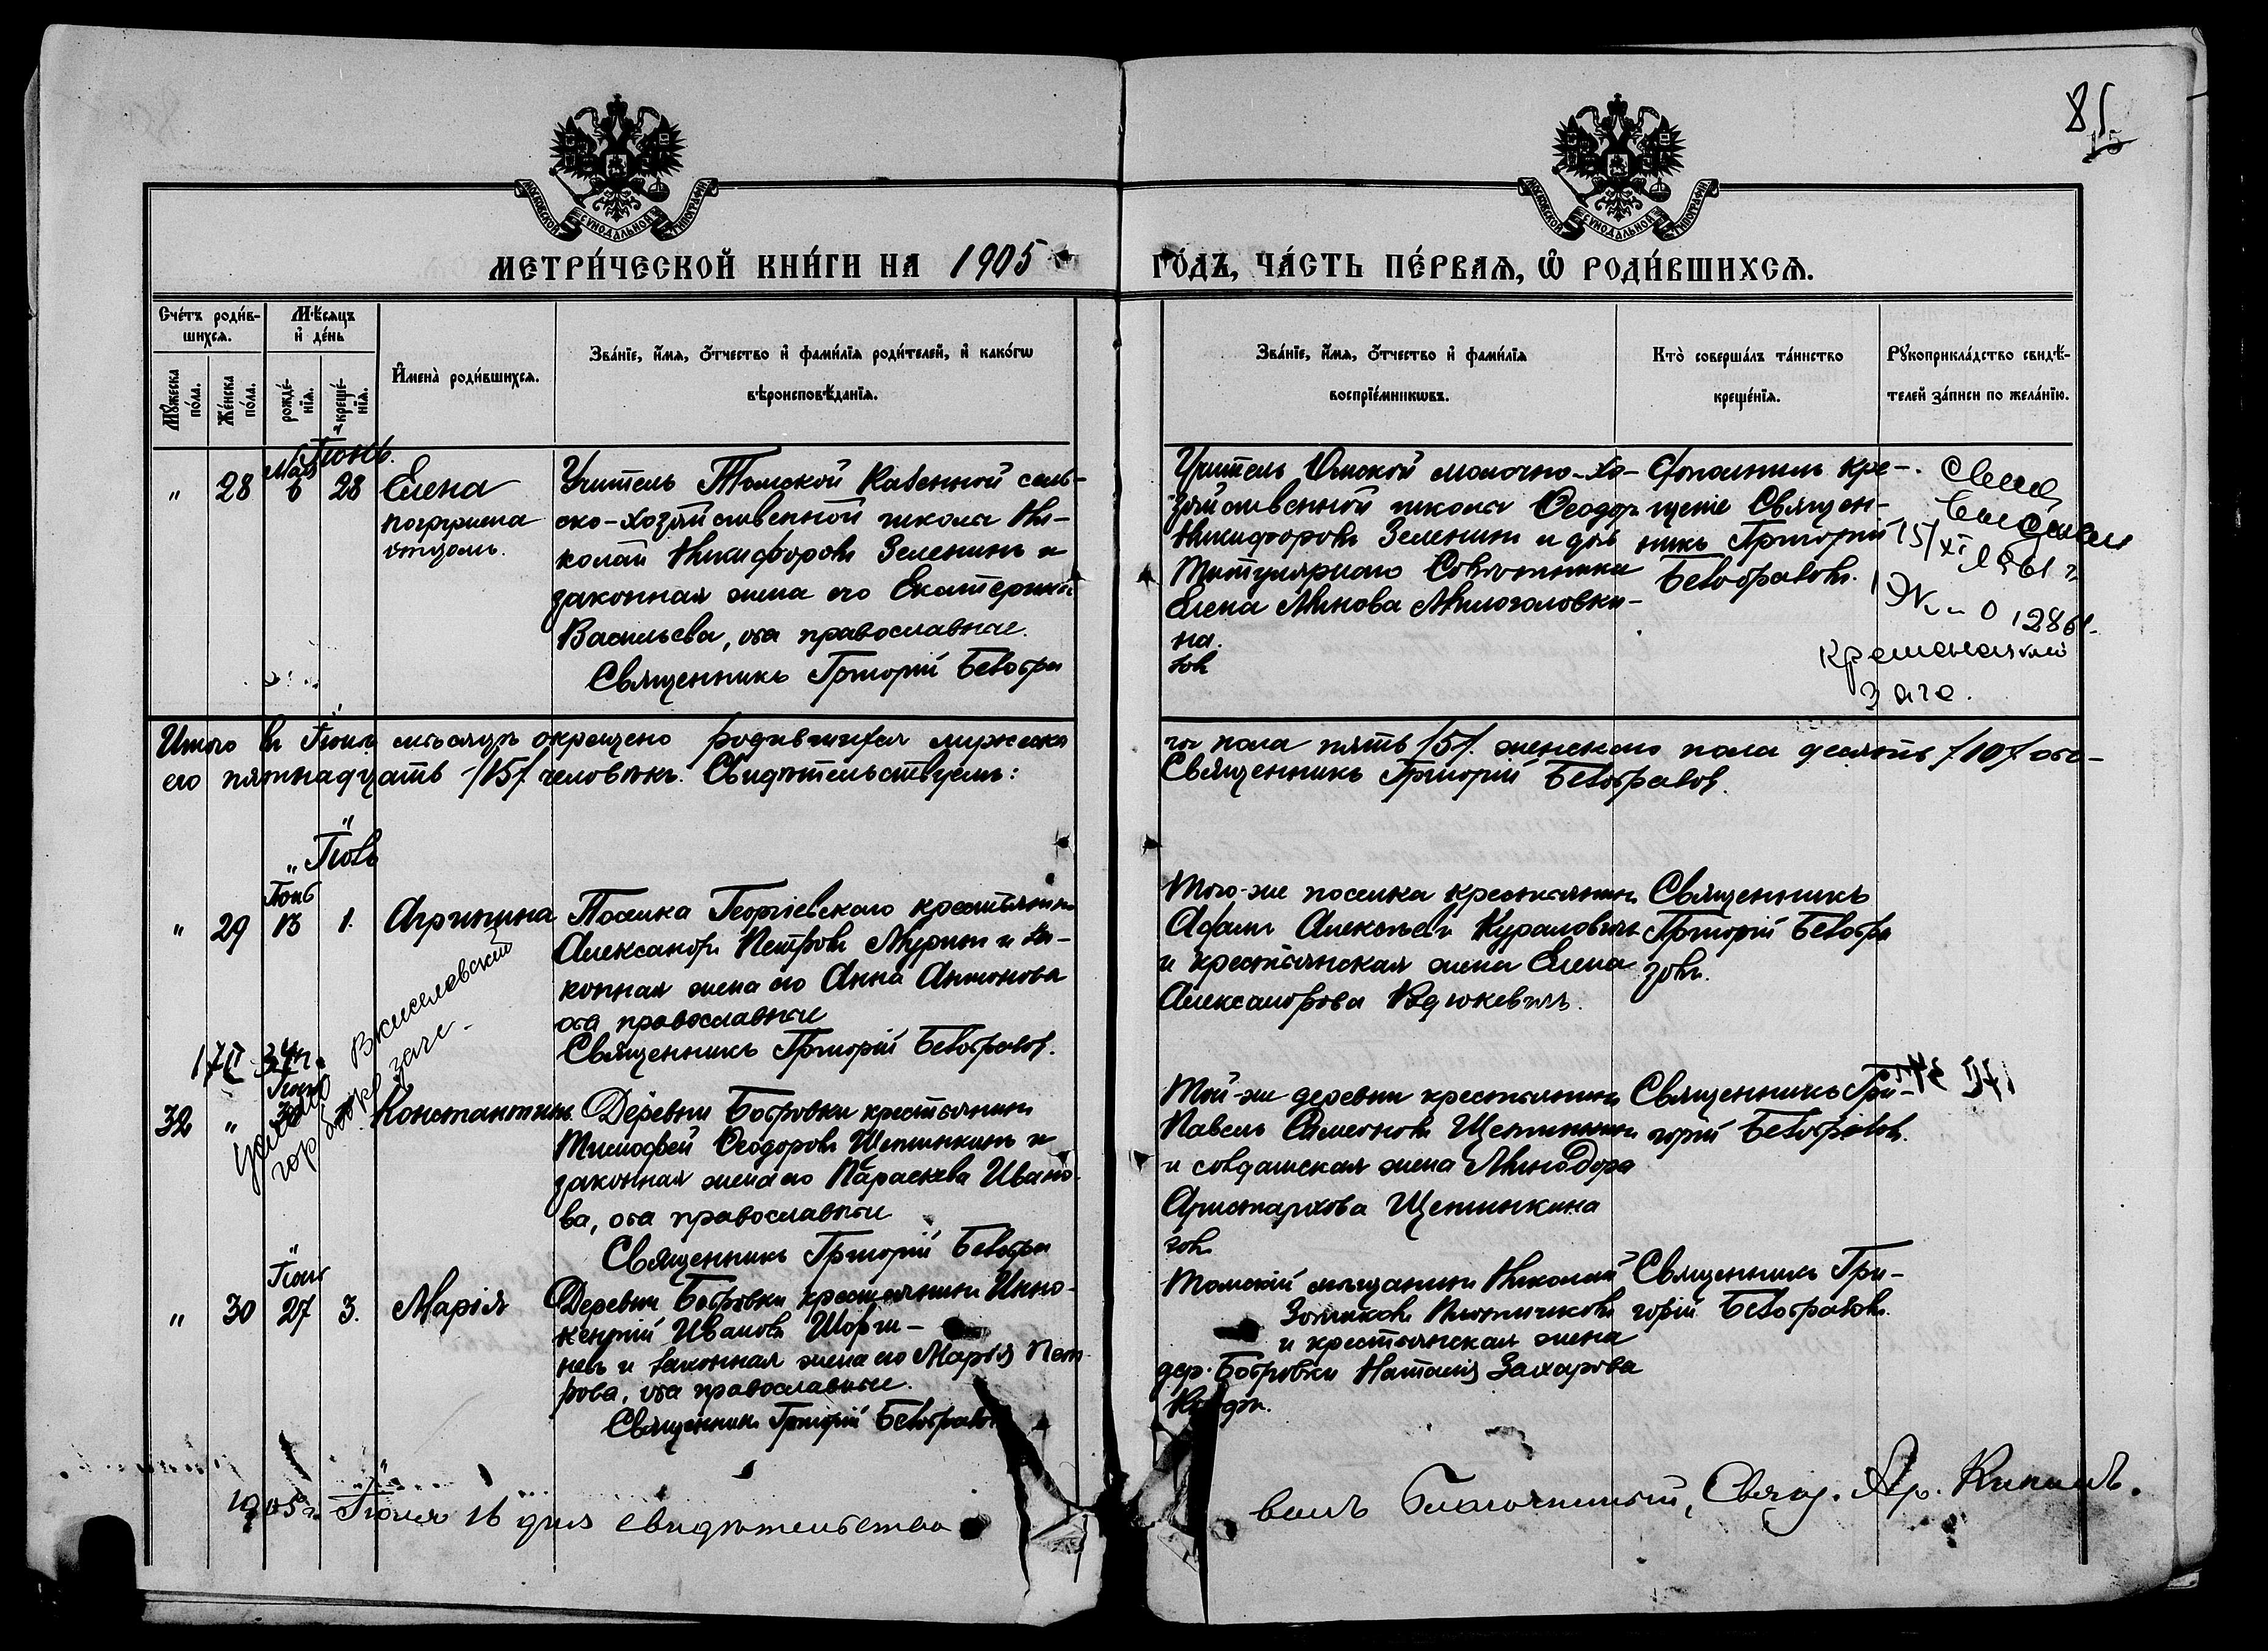 85
15
МОСКОВСКОЙ СѴНОДАЛЬНОЙ ТИПОГРАФІИ
МОСКОВСКОЙ СѴНОДАЛЬНОЙ ТИПОГРАФІИ
МЕТРИ́ЧЕСКОЙ КНИ́ГИ НА 1905
ГО́ДЪ, ЧА́СТЬ ПЕ́РВАѦ, Ѡ҆ РОДИ́ВШИХСѦ.
Сче́тъ роди́в-
шихсѧ.
Мѣ́сѧцъ
и҆ де́нь
Мꙋ́жеска
по́ла.
Же́нска
по́ла.
рожде́-
нїѧ.
креще́-
нїѧ.
И҆мена̀ роди́вшихсѧ.
Зва́нїе, и҆́мѧ, ѻ҆́тчество и҆ фами́лїѧ роди́телей, и҆ како́гѡ
вѣроисповѣ́данїѧ.
Зва́нїе, и҆́мѧ, ѻ҆́тчество и҆ фами́лїѧ
воспрїе́мникѡвъ.
Кто̀ соверша́лъ та́инство
креще́нїѧ.
Рꙋкоприкла́дство свидѣ́-
телей за́писи по жела́нїю.
Май Іюнь.
" 28 6 28 Елена
погружена
отцомъ.
Учитель Томской Казенной сель-
ско-хозяйственной школы Ни-
колай Никифоровъ Зеленинъ и
законная жена его Екатерина
Васильева, оба православные.
Священникъ Григорій Безобра
Учитель Омской молочно-хо-
зяйственной школы Ѳеодоръ
Никифоровъ Зеленинъ и дочь
Титулярнаго Совѣтника
Елена Минова Милоголовки-
на.
зов
Исполнилъ кре-
щеніе Священ-
никъ Григорій
Безобразовъ.
15/XI 1961 г.
загс.
Итого въ Іюнѣ мѣсяцѣ окрещено родившихся мужеска
го пола пять /5/. женскаго пола десять /10/ обо-
его пятнадцать /15/ человѣкъ. Свидѣтельствуемъ:
Священникъ Григорій Безобразов.
" Іюль
Іюнь
" 29 13 1. Агрипина
Поселка Георгіевскаго крестьянинъ
Александръ Петровъ Мурин и за-
конная жена его Анна Антонова
оба православные
Священникъ Григорій Безобразов.
Того-же поселка крестьянинъ
Афанас Алексѣевъ Кураловичъ
и крестьянская жена Елена
Александрова
Священникъ
Григорій Безобра
зовъ.
Вкиселевский
гор загс.
Іюнь
32 " 30 Константинъ.
Деревни Бобровки крестьянинъ
Тимофей Ѳеодоровъ Щетинкинъ и
законная жена его Параскева Ивано-
ва, оба православные
Священникъ Григорій Безобра
Той-же деревни крестьянинъ
Павелъ Симеоновъ Щетинкинъ
и солдатская жена Минодора
Аристархова Щетинкина
зовъ
Священникъ Гри-
горій Безобразов.
"
Іюнь
" 30 27 3. Марія
Деревни Бобровки крестьянинъ Инно-
кентій Ивановъ Шорги-
нъ и законная жена его Марія Пет-
рова, оба православные.
Священникъ Григорій Безобразовъ
Томскій мѣщанинъ Николай
Зотиковъ Плотниковъ
и крестьянская жена
дер. Бобровки Наталія Захарова
Священникъ Гри-
горій Безобразовъ.
1905 г. Іюля 16 дня свидѣтельство
валъ Благочинный, Свящ.